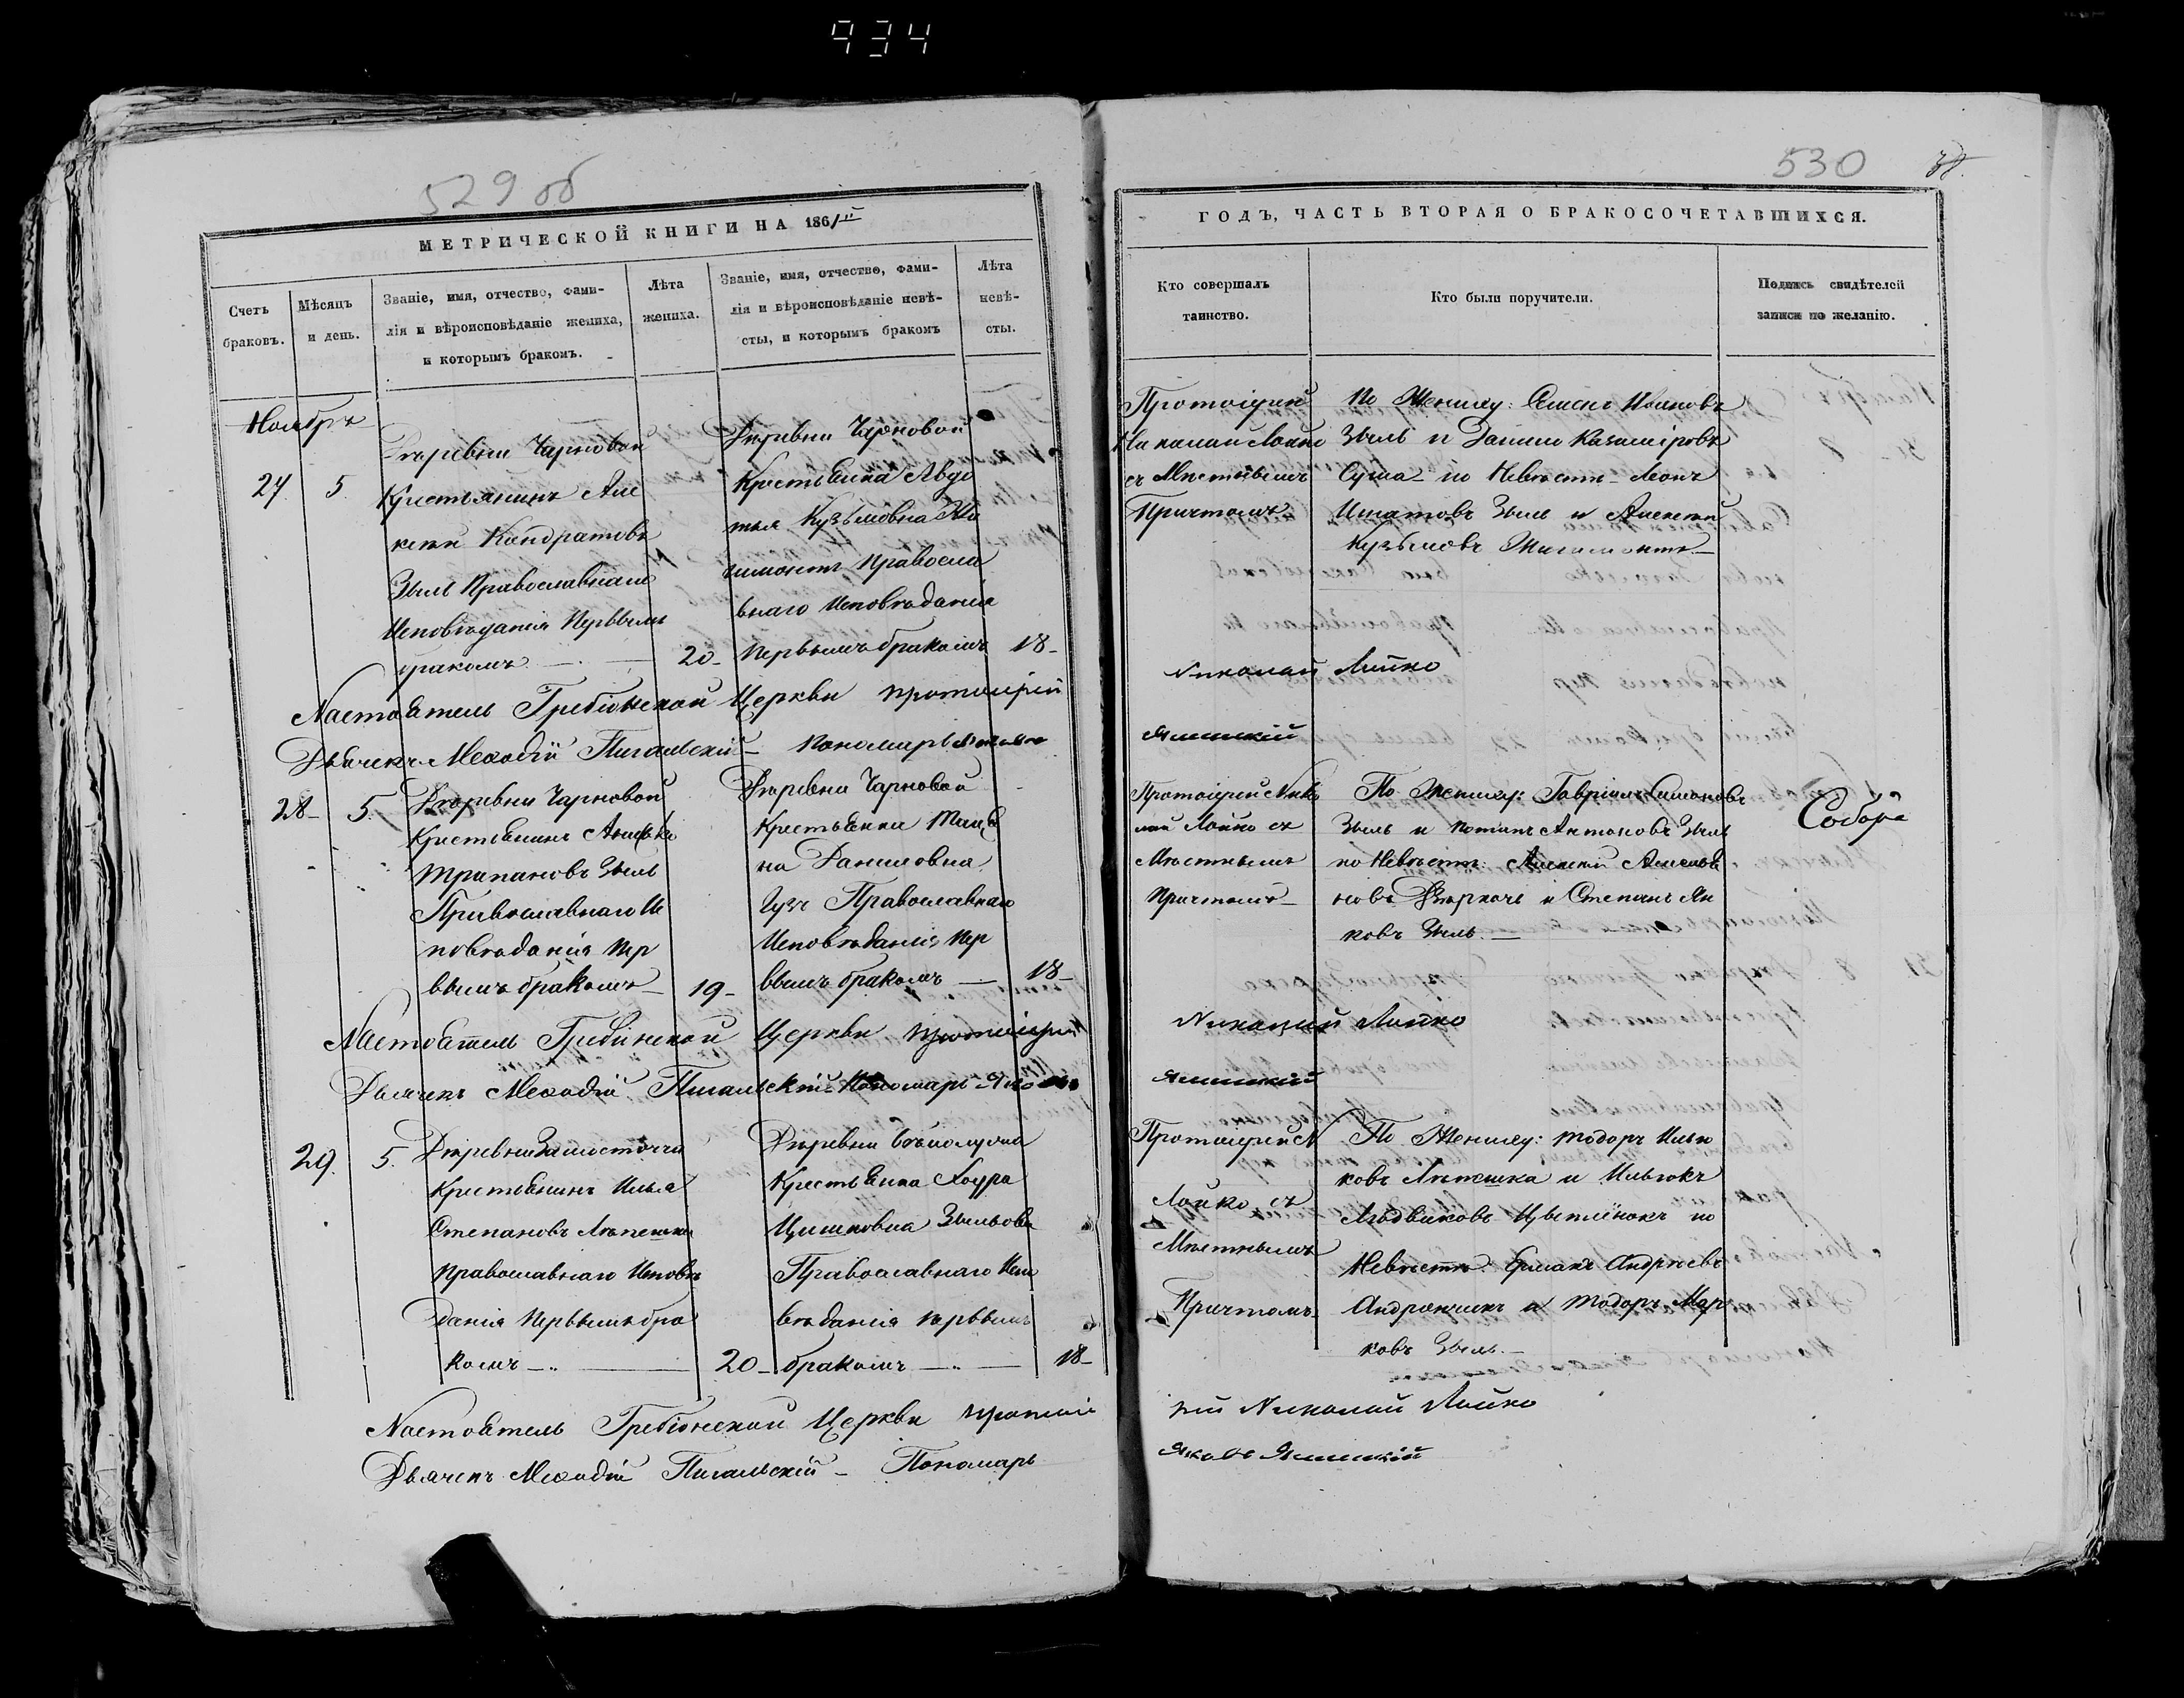 934
529 об
МЕТРИЧЕСКОЙ КНИГИ НА 1861
Счетъ браковъ.
Мѣсяцъ и день.
Званіе, имя, отчество, фами-
лія и вѣроисповѣданіе жениха,
и которымъ бракомъ.
Лѣта жениха.
Званіе, имя, отчество, фами-
лія и вѣроисповѣданіе невѣ-
сты, и которымъ бракомъ
Лѣта невѣ-
сты.
Ноябрь
27. 5.
Деревни Чарновой
Крестьянинъ Але
ксѣй Кондратовъ
Зыль Православнаго
Исповѣданія Первымъ
бракомъ 20
Деревни Чарновой
Крестьянка Авдо
тья Кузьмовна Жи
гимонтъ Правосла
внаго Исповѣданія
Первымъ бракомъ 18
Настоятель Гребіонской Церкви протоіерей
Дьячекъ Меѳодій Пигальскій Пономарь
28 5.
Деревни Чарновой
Крестьянинъ
Зыль
Православнаго Ис
повѣданія Пер
вымъ бракомъ 19
Деревни Чарновой
Крестьянка
на Даниловна
Гузъ Православнаго
Исповѣданія Пер
вымъ бракомъ 18
Настоятель Церкви протоіерей
Дьячекъ Меѳодій Пигальскій Пономарь
29. 5.
Деревни Замосточья
Крестьянинъ Илья
Степановъ Лепешка
Православнаго Исповѣ
данія Первымъ бра
комъ 20
Деревни
Крестьянка
Зыльова
Православнаго Испо
вѣданія первымъ
бракомъ 18
Настоятель Гребіонской Церкви
Дьячекъ Меѳодій Пигальскій Пономарь
530
ГОДЪ, ЧАСТЬ ВТОРАЯ О БРАКОСОЧЕТАВШИХСЯ.
Кто совершалъ таинство.
Кто были поручители.
Подпись свидѣтелей
записи по желанію.
Протоіерей
Николай Лойко
съ Мѣстнымъ
Причтомъ
По Жениху: Семенъ Ивановъ
Зыль и Данило Казиміровъ
Суша по Невѣстѣ Леонъ
Игнатовъ Зыль и Алексѣй
Кузьмовъ Жигимонтъ
Николай Лойко
Протоіерей Нико
лай Лойко съ
Мѣстнымъ
Причтомъ
По Жениху: Гавріилъ Симоновъ
Зыль и Антоновъ Зыль
по Невѣстѣ: Алексѣй
и Степанъ Ян
ковъ Зыль.
Соборъ
Николай Лойко
Протоіерей Н
Лойко съ
Мѣстнымъ
Причтомъ
По Жениху: Тодоръ Ильи
ковъ Лепешка и
по
Невѣстѣ: Андреевъ
и Тодоръ Мар
ковъ Зыль.
рей Николай Лойко
Яковъ